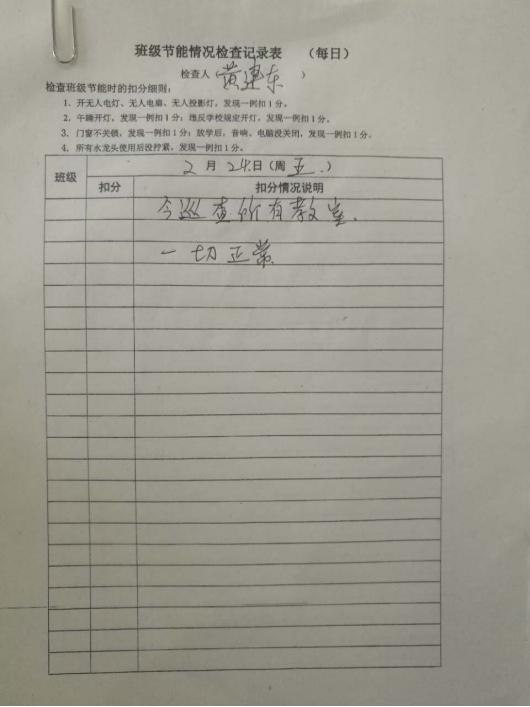 班级节能情况检查记录表 （每日）
检查人（黄建东 ）
检查班级节能时的扣分细则：
1．开无人电灯、无人电扇、无人投影灯，发现一例扣1分。
2．午睡开灯，发现一例扣1分；违反学校规定开灯，发现一例扣1分。
3．门窗不关锁，发现一例扣1分；放学后，音响、电脑没关闭，发现一例扣1分。
4．所有水龙头使用后没拧紧，发现一例扣1分。
班级 2月24日（周五．）
扣分 扣分情况说明
今巡查所有教室．
一切正常